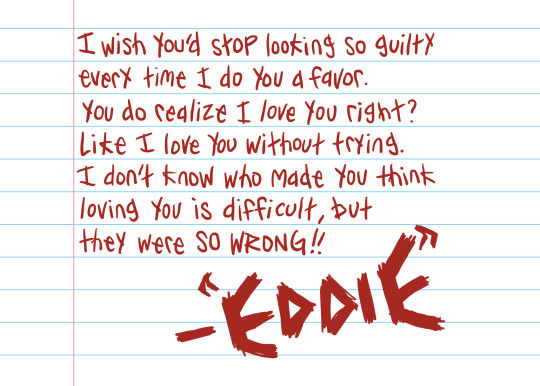 I wish you'd stop looking so guilty
every time I do you a favor.
You do realize I love you right?
Like I love you without trying.
I don't know who made you think
loving you is difficult, but
they were SO WRONG!!
– "EDDIE"